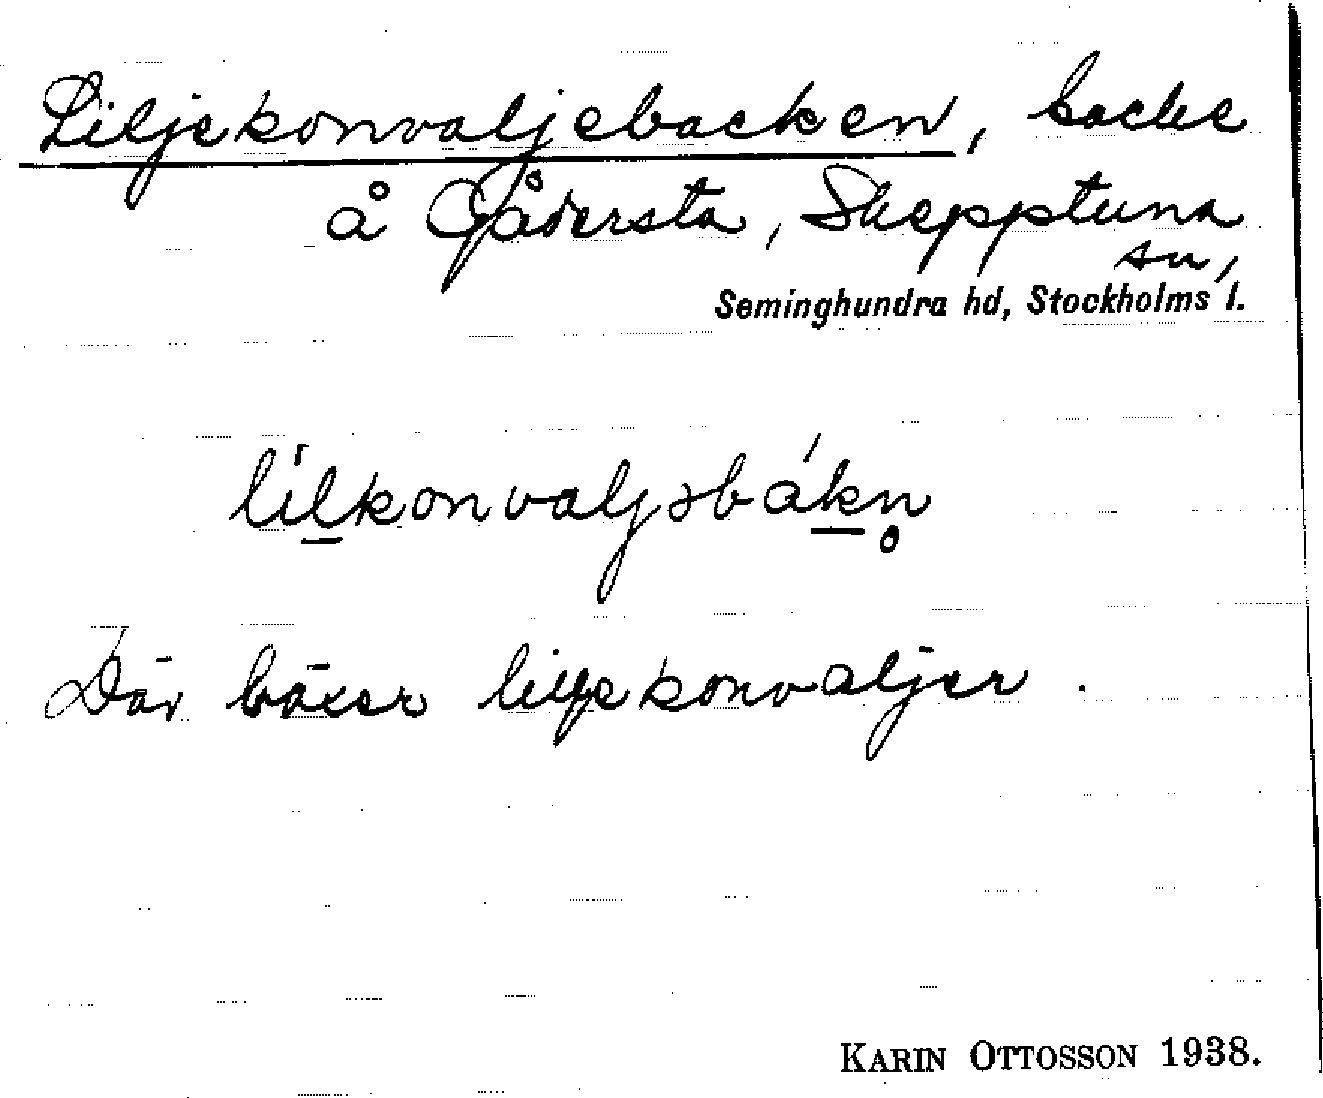 Liljekonvaljebacken, backe
å Gådersta, Skepptuna
sn,
Seminghundra hd, Stockholms l.
li̍l̠konvaljsbák̠n̥
Där växer liljekonvaljer.
KARIN OTTOSSON 1938.